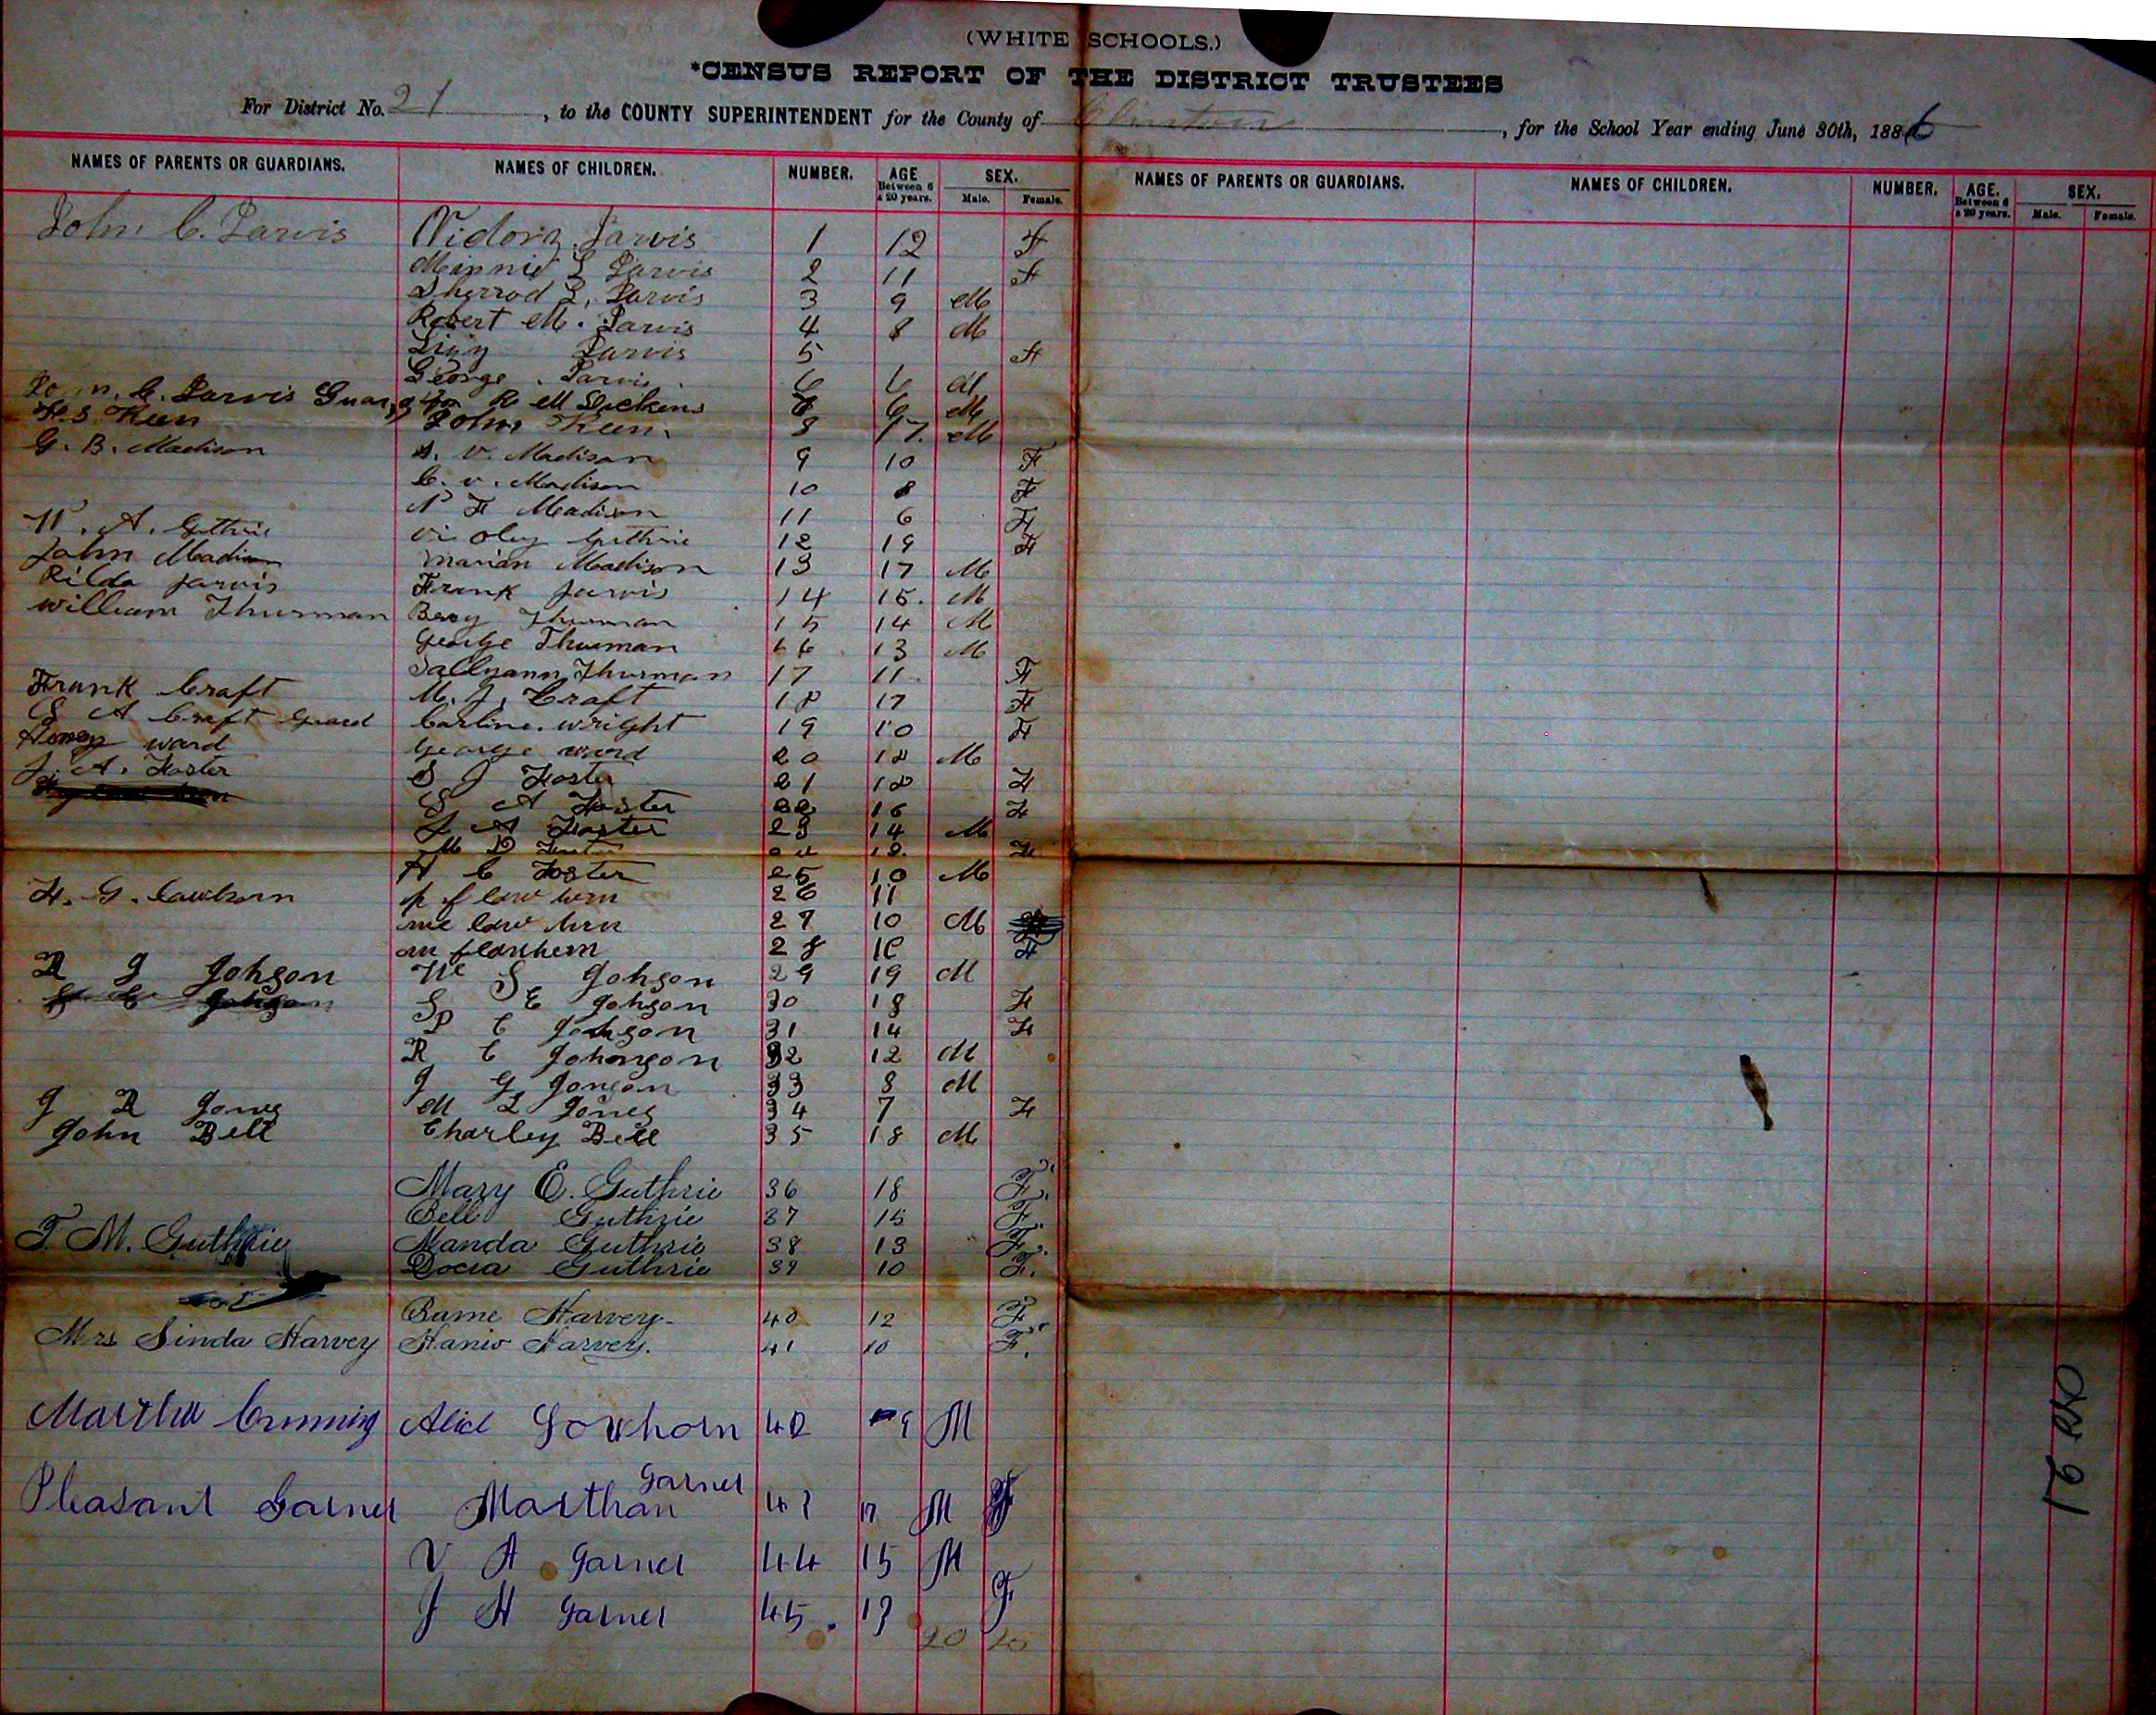 (WHITE SCHOOLS.)
*CENSUS REPORT OF THE DISTRICT TRUSTEES
For District No. 21, to the COUNTY SUPERINTENDENT for the County of Clinton, for the School Year ending June 30th, 1886
NAMES OF PARENTS OR GUARDIANS. NAMES OF CHILDREN. NUMBER. AGE Between 6 & 20 years. SEX. Male. Female. NAMES OF PARENTS OR GUARDIANS. NAMES OF CHILDREN. NUMBER. AGE. Between 6 & 20 years. SEX. Male. Female.
John C. Jarvis Jarvis 1 12 F
Minnie L Jarvis 2 11 F
Sherrod L. Jarvis 3 9 M
Robert M. Jarvis 4 8 M
Jarvis 5 F
George Jarvis 6 6 M
John. C. Jarvis R M Dickens 6 M
Keen John Keen 8 17. M
G. B. Madison V. Madison 9 10 F
C. V. Madison 10 8 F
F Madison 11 6 F
W. A. Guthrie Guthrie 12 19 F
John Madison Marian Madison 13 17 M
Rilda Jarvis Frank Jarvis 14 15. M
William Thurman Bery Thurman 15 14 M
George Thurman 16 13 M
Sallyann Thurman 17 11 F
Frank Craft M. J. Craft 18 17 F
S A Craft Guard Carline. Wright 19 10 F
Ward George Ward 20 18 M
J. A. Foster S J Foster 21 18 F
S A Foster 22 16 F
J A Foster 23 14 M
M D Foster F
H C Foster 25 10 M
26 11
27 10 M
28 F
R J Johgson S Johgson 29 19 M
S E Johgson 30 18 F
P C Johgson 31 14 F
R C Johongson 32 12 M
J G 33 8 M
J R Jones M L Jones 34 7 F
John Bell Charley Bell 35 18 M
Mary E. Guthrie 36 18 F.
Bell Guthrie 37 15 F.
T. M. Guthrie Manda Guthrie 38 13 F.
Docia Guthrie 39 10 F.
Harvey 40 12 F.
Mrs Sinda Harvey Harvey. 41 10 F.
Martha Alice 42 9 M
Pleasant Garner Marthan Garner 43 17 M
V A Garner 44 15 M
J H Garner 45. 13 F
20